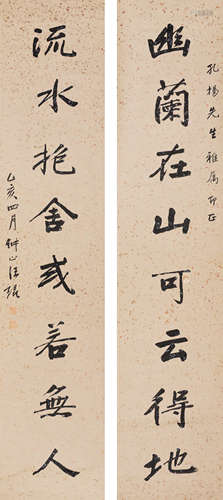 孔揚先生雅屬即正
幽蘭在山可云得地
流水抱舍或若無人
乙亥四月